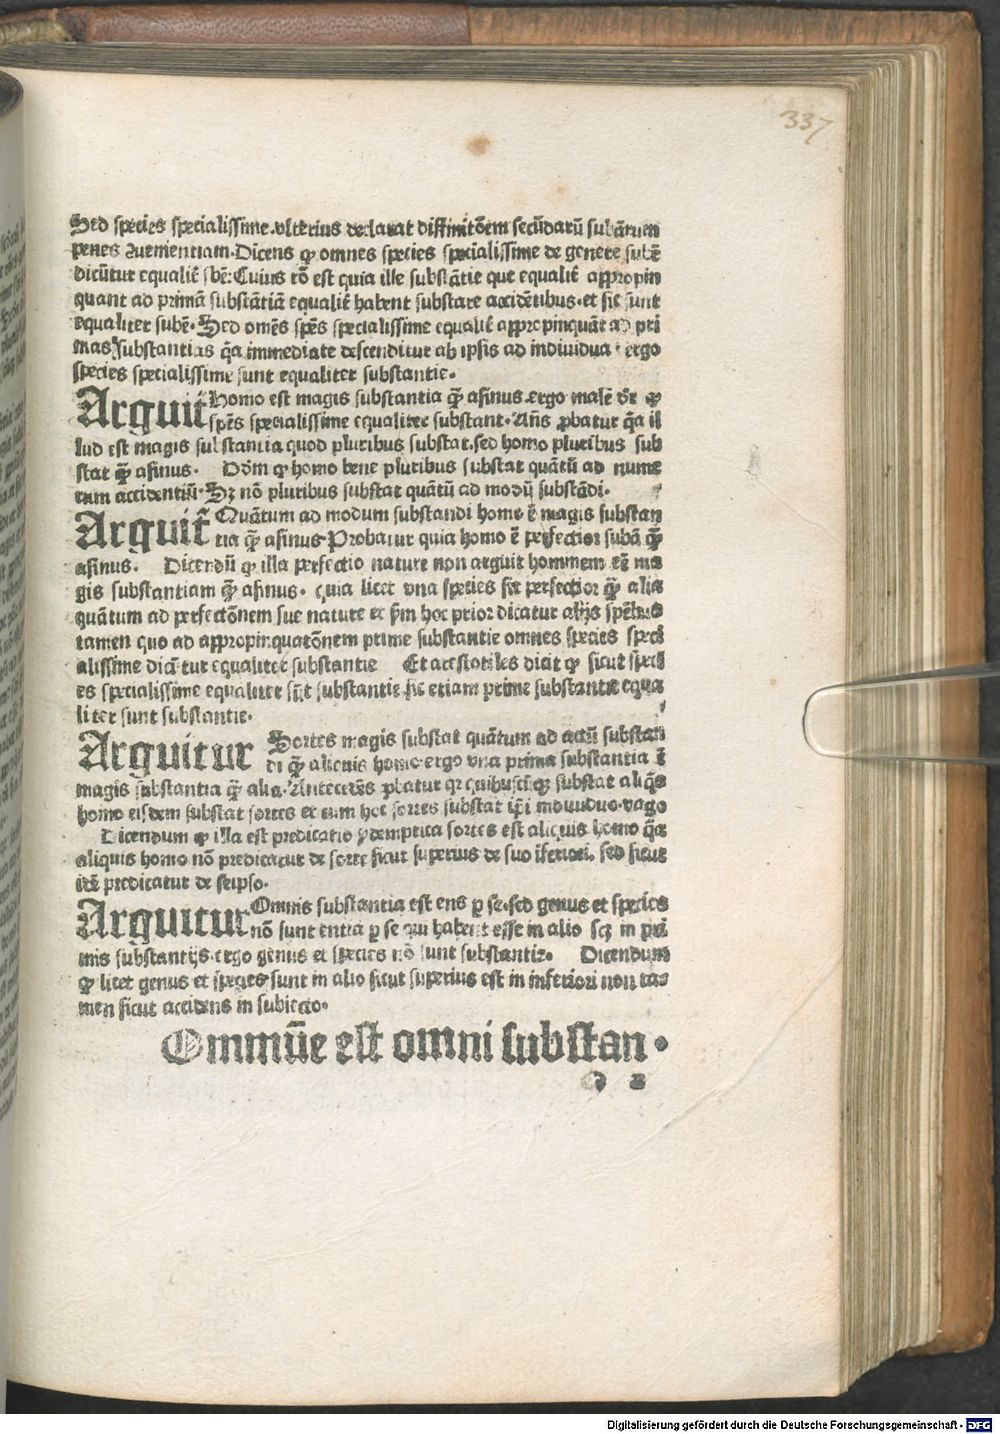 337
Sed species specialissime. vlterius declarat diffinitõem secũdarũ subãrum
penes ↄuenientiam. Dicens ꝙ omnes species specialissime de genere subẽ
dicũtur equalit̃ sbẽ: Cuius rõ est quia ille substãtie que equalit̃ appropin
quant ad primã substãtiã equalit̃ habent substare accidẽtibus. et sic sunt
equaliter subẽ. Sed omẽs spẽs specialissime equalit̃ appropinquãt ad pri
mas substantias q̃a immediate descenditur ab ipsis ad indiuidua. ergo
species specialissime sunt equaliter substantie.
Arguit̃ Homo est magis substantia qꝫ̃ asinus. ergo male dr̃ ꝙ
spẽs specialissime equaliter substant. Añs ꝓbatur q̃a il
lud est magis substantia quod pluribus substat. sed homo pluribus sub
stat qꝫ̃ asinus. Dõm ꝙ homo bene pluribus substat quãtũ ad nume
rum accidentiũ. Sꝫ nõ pluribus substat quãtũ ad modũ substãdi.
Arguit̃ Quãtum ad modum substandi homo ẽ magis substan
tia qꝫ̃ asinus Probatur quia homo ẽ perfectior subã qꝫ̃
asinus. Dicendũ ꝙ illa perfectio nature non arguit hominem eẽ ma
gis substantiam qꝫ̃ asinus. quia licet vna species sit perfectior qꝫ̃ alia
quãtum ad perfectõnem sue nature et ẜm hoc prior dicatur alijs spẽbus
tamen quo ad appropinquatõnem prime substantie omnes species speci
alissime dicũtur equaliter substantie Et arestotiles dicit ꝙ sicut speci
es specialissime equaliter sũt substantie sic etiam prime substantie equa
liter sunt substantie.
Arguitur Sortes magis substat quãtum ad actũ substan
di qꝫ̃ aliquis homo. ergo vna prima substantia ẽ
magis substantia qꝫ̃ alia. Antecedẽs ꝓbatur qr quibuscũqꝫ substat aliq̃s
homo eisdem substat sortes et cum hoc sortes substat ip̃i indiuiduo vago
Dicendum ꝙ illa est predicatio ydemptica sortes est aliquis homo q̃a
aliquis homo nõ predicatur de sorte sicut superius de suo ĩferiori. sed sicut
idẽ predicatur de seipso.
Arguitur Omnis substantia est ens ꝑ se. sed genus et species
nõ sunt entia ꝑ se qui habent esse in alio scꝫ in pri
mis substantijs. ergo genus et species nõ sunt substantie. Dicendum
ꝙ licet genus et species sunt in alio sicut superius est in inferiori non ta-
men sicut accidens in subiecto.
Ommũe est omni substan.
Digitalisierung gefördert durch die Deutsche Forschungsgemeinschaft - DFG